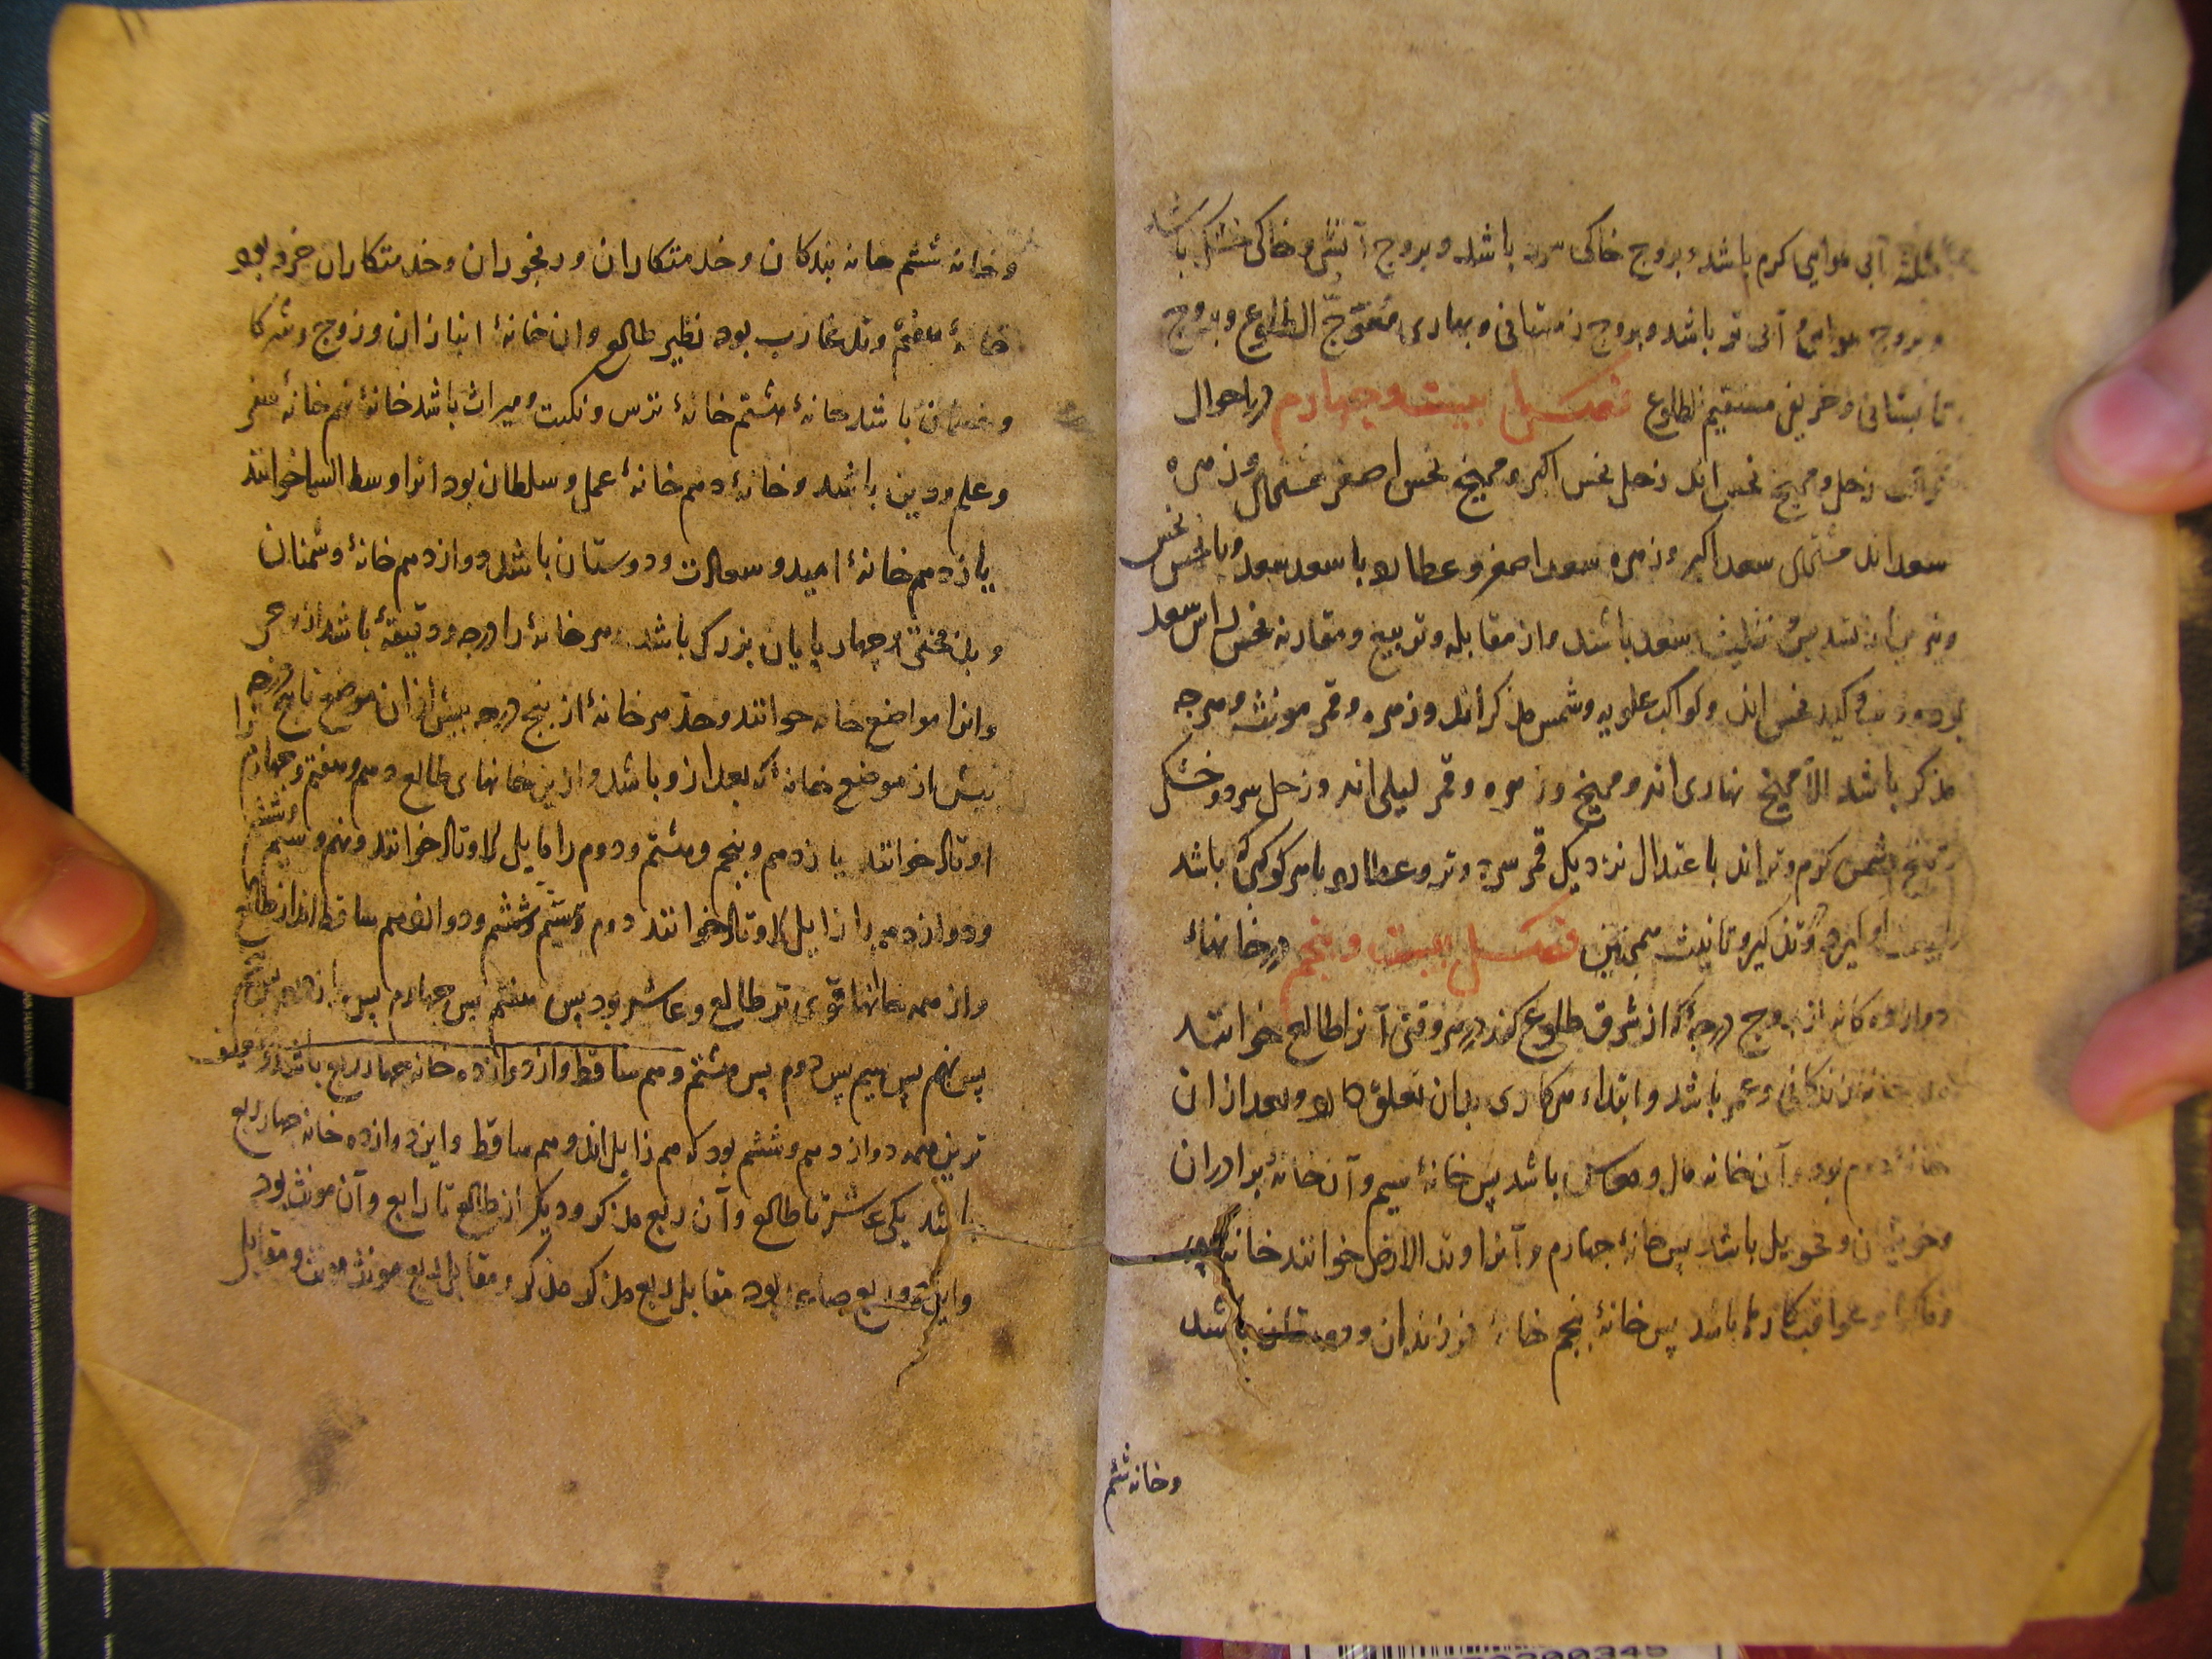 مثلثه آبی هوایی کرم باشد و بروج خاکی سرد باشد و بروج آتشی و خاکی خشک باشد
و بروج هوایی و آبی تر باشد و بروج زمستانی و بهاری معوّج الطلوع و بروج
تابستانی و خریفی مستقیم الطلوع فصل بیست و چهارم در احوال
زحل و مریخ نحس اند زحل نحس اکبر و مریخ نحس اصغر مشتری و زهره
سعد اند مشتری سعد اکبر و زهره سعد اصغر و عطارد با سعد سعد و با نحس نحس
و نیرین از تسدیس و تثلیث سعد باشند و از مقابله و تربیع و مقارنه نحس راس سعد
بود و ذنب و کید نحس اند و کواکب علویه و شمس مذکر اند و زهره و قمر مونث و هرچه
مذکر باشد الا مریخ نهاری اند و مریخ و زهره و قمر لیلی اند و زحل سرد و خشک
مریخ شمس کرم و تر اند باعتدال نزدیک قمر سرد و تر و عطارد با هر کوکبی که باشد
طبیعت او گیرد و تذکیر و تانیث همچنین فصل بیست و پنجم در خانهاء
دوازده کانه از بروج درجهٔ که از شرق طلوع کند در هر وقتی آنرا طالع خوانند
خانه زندکانی و عمر باشد و ابتداء هر کاری بدان تعلق دارد و بعد از آن
خانهٔ دوم بود و آن خانه مال و معاش باشد پس خانهٔ سیم و آن خانهٔ برادران
و خویشان و تحویل باشد پس خانهٔ چهارم و آنرا وتد الارض خوانند خانه پدر
و عواقب کارها باشد پس خانهٔ پنجم خانهٔ فرزندان و دوستان باشد
و خانه ششم
و خانه ششم خانه بندکان و خدمتکاران و رنجوران و خدمتکاران خرد بود
خانهٔ هفتم وتد غارب بود نظیر طالع و ان خانهٔ انبازان و زوج و شرکا
و خصمان باشد خانهٔ هشتم خانهٔ ترس و نکبت و میراث باشد خانهٔ نهم خانهٔ سفر
و علم و دین باشد و خانهٔ دهم خانهٔ عمل و سلطان بود انرا وسط السما خوانند
یازدهم خانهٔ امید و سعادت و دوستان باشد دوازدهم خانهٔ دشمنان
و بدبختی و چهار پایان بزرک باشد هر خانهٔ را درجه و دقیقهٔ باشد از برج
و انرا مواضع خانه خوانند و حد هر خانهٔ از پنج درجه پیش از آن موضع تا پنج درجه
پیش از موضع خانهٔ که بعد از و باشد و ازین خانهای طالع و دهم و هفتم و چهارم را
اوتاد خوانند یازدهم و پنجم و هشتم و دوم را مایل الاوتاد خوانند و نهم و سیم و ششم
و دوازدهم را زایل الاوتاد خوانند دوم و هشتم و ششم و دوازدهم ساقط اند از طالع
و از همه خانها قوی تر طالع و عاشر بود پس هفتم پس چهارم پس یازدهم پس پنجم
پس نهم پس سیم پس دوم پس هشتم و هم ساقط و از دوازده خانه چهار ربع باشد و ضعیف
ترین همه دوازدهم و ششم بود که هم زایل اند و هم ساقط و این دوازده خانه چهار ربع
باشد یکی عاشر تا طالع و آن ربع مذکر و دیکر از طالع تا رابع و آن مونث بود
و این دو ربع بود مقابل ربع مذکر مذکر و مقابل ربع مونث مونث و مقابل